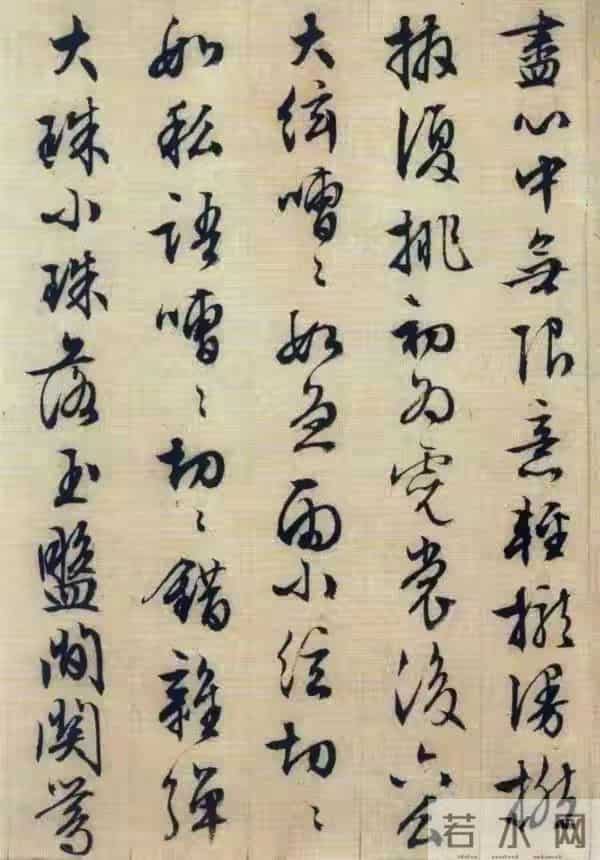 盡心中無限意輕攏慢撚
撥復挑初為霓裳後六幺
大絃嘈〻如急雨小絃切〻
如私語嘈〻切〻錯雜彈
大珠小珠落玉盤間關鶯
若水网